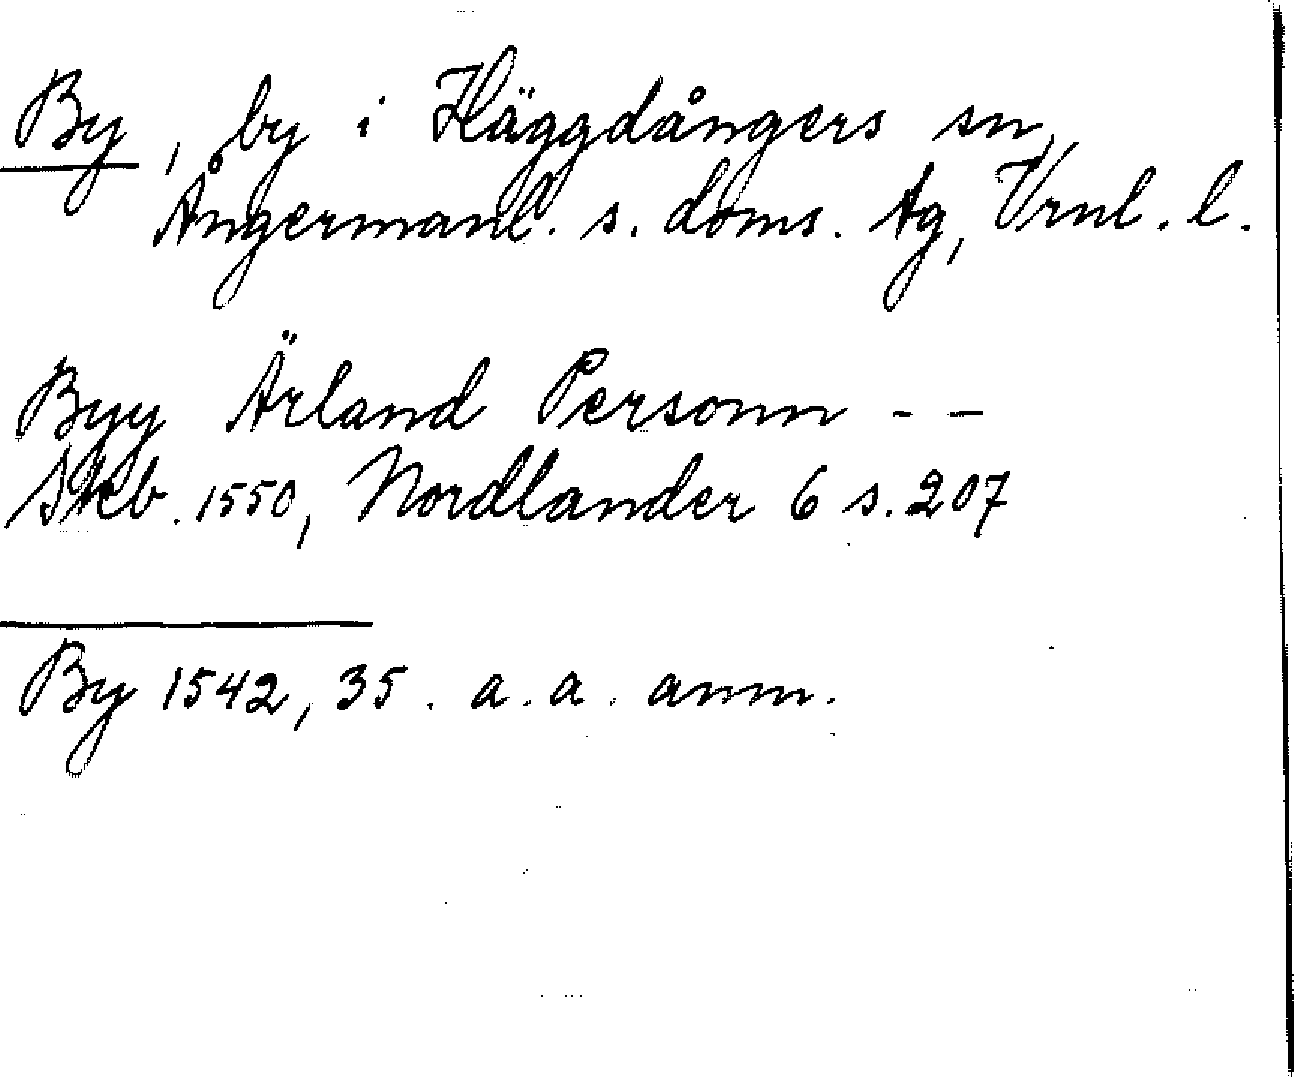 By, by i Häggdångers sn,
Ångermanl. s. doms. tg, Vrnl. l.
Byy Ärland Personn - -
Skb. 1550, Nordlander 6 s. 207
By 1542, 35. a. a. anm.